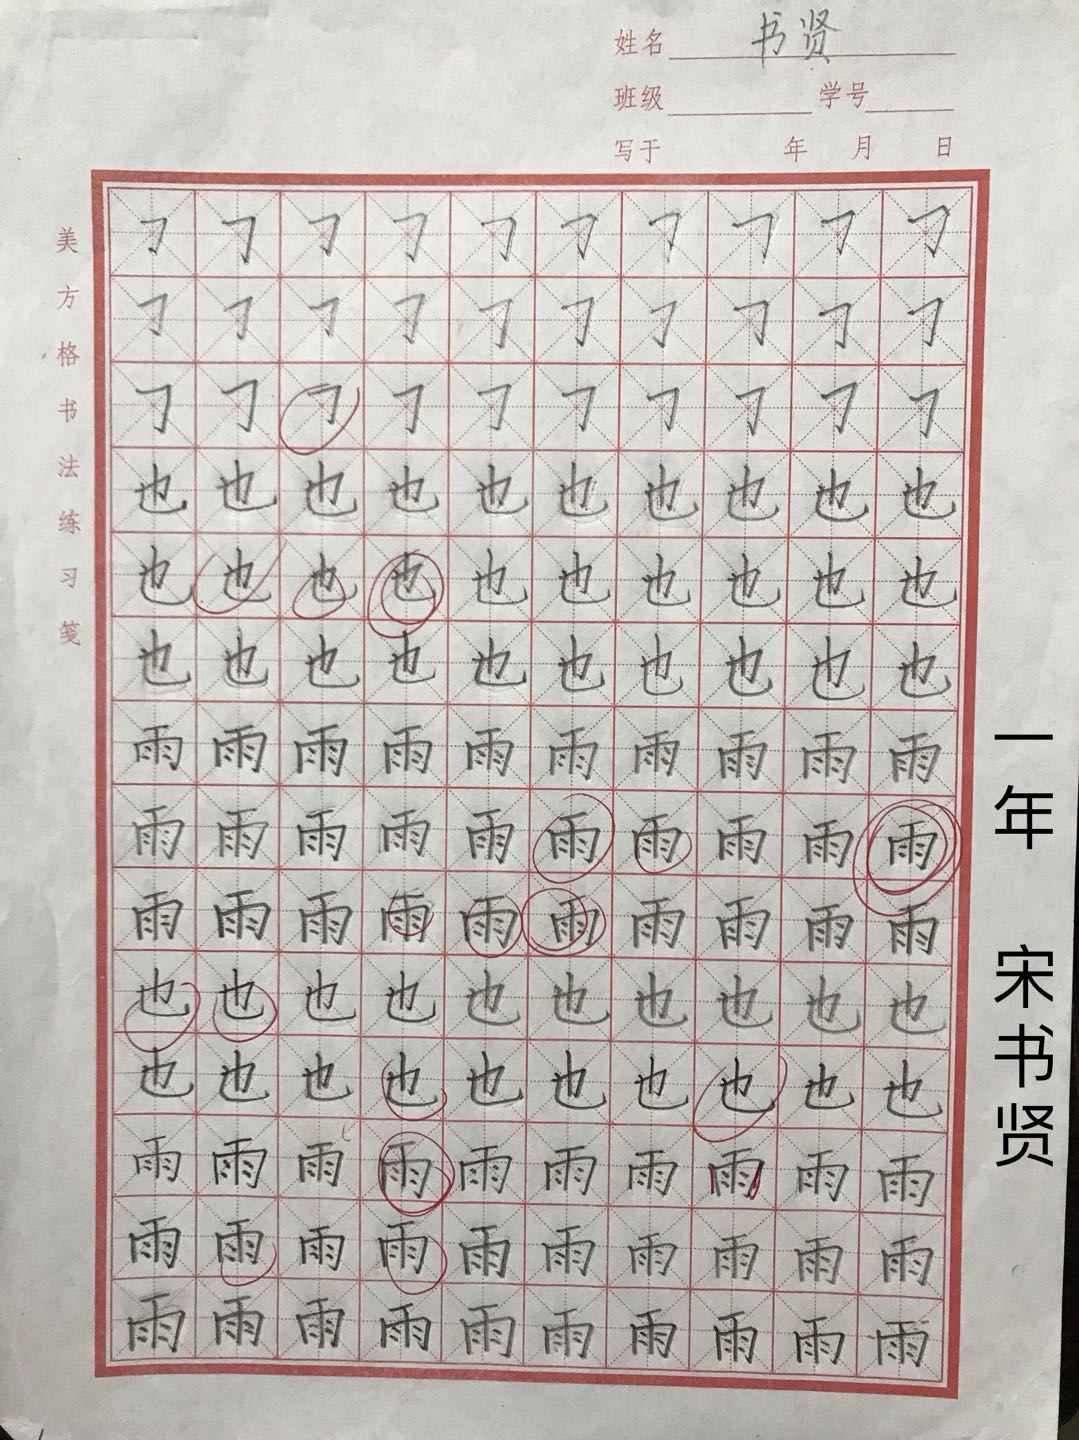 姓名 书贤
班级 学号
写于 年 月 日
美方格书法练习笺
𠃌 𠃌 𠃌 𠃌 𠃌 𠃌 𠃌 𠃌 𠃌 𠃌
𠃌 𠃌 𠃌 𠃌 𠃌 𠃌 𠃌 𠃌 𠃌 𠃌
𠃌 𠃌 𠃌 𠃌 𠃌 𠃌 𠃌 𠃌 𠃌 𠃌
也 也 也 也 也 也 也 也 也 也
也 也 也 也 也 也 也 也 也 也
也 也 也 也 也 也 也 也 也 也
雨 雨 雨 雨 雨 雨 雨 雨 雨 雨
雨 雨 雨 雨 雨 雨 雨 雨 雨 雨
雨 雨 雨 雨 雨 雨 雨 雨 雨 雨
也 也 也 也 也 也 也 也 也 也
也 也 也 也 也 也 也 也 也 也
雨 雨 雨 雨 雨 雨 雨 雨 雨 雨
雨 雨 雨 雨 雨 雨 雨 雨 雨 雨
雨 雨 雨 雨 雨 雨 雨 雨 雨 雨
一年 宋书贤